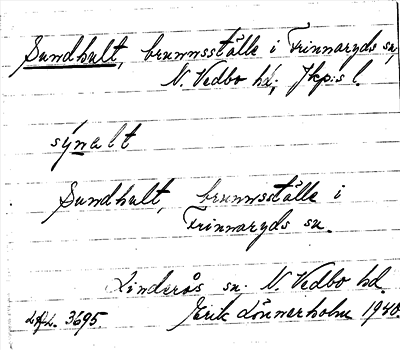 Sundhult, brunnsställe i Frinnaryds sn,
N. Vedbo hd; Jkp:s l.
sýnalt
Sundhult, brunnsställe i
Frinnaryds sn.
Linderås sn. N. Vedbo hd.
Erik Lönnerholm 1940.
3695.